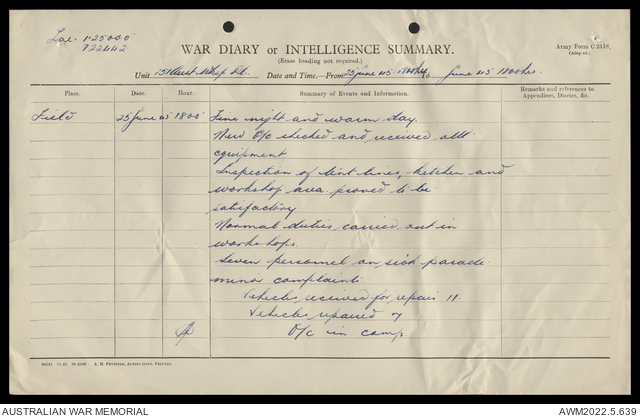 Lae. 1·25000
722442
WAR DIARY OR INTELLIGENCE SUMMARY.
(Erase heading not required.)
Army Form C.2118.
(Adap.)
Unit 151 Aust Date and Time.—From 25 June 45 1800 hrs to June 45 1800 hrs.
Place. Date. Hour. Summary of Events and Information. Remarks and references to Appendices, Diaries, &c.
Field 25 June 45 1800 Fine night and warm day.
New O/c checked and received all
equipment
Inspection of tent lines, kitchen and
workshop area proved to be
satisfactory
Normal duties carried out in
workshops.
Seven personnel on sick parade
minor complaints
Vehicles received for repair 11
Vehicles repaired 7
O/c in camp
A. H. PETTIFER, ACTING GOVT. PRINTER.
AUSTRALIAN WAR MEMORIAL
AWM2022.5.639